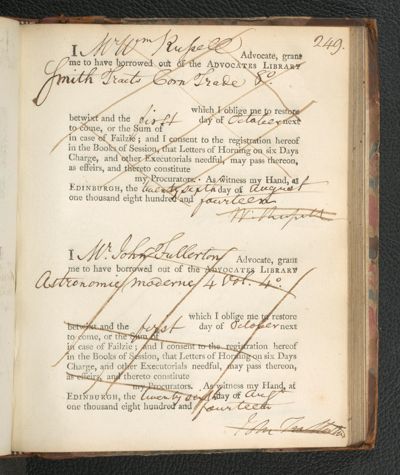 249.
I Mr Wm Russell Advocate, grant
me to have borrowed out of the ADVOCATES LIBRARY
Smith Tracts Corn Trade 8o
which I oblige me to restore
betwixt and the first day of October next
to come, or the Sum of
in case of Failzie; and I consent to the registration hereof
in the Books of Session, that Letters of Horning on six Days
Charge, and other Executorials needful, may pass thereon,
as effeirs, and thereto constitute
my Procurators. As witness my Hand, at
EDINBURGH, the twenty sixth day of August
one thousand eight hundred and fourteen
W. Russell
I Mr. John Fullerton Advocate, grant
me to have borrowed out of the ADVOCATES LIBRARY
Astronomie moderne 4 Vol. 4o.
which I oblige me to restore
betwixt and the first day of October next
to come, or the Sum of
in case of Failzie; and I consent to the registration hereof
in the Books of Session, that Letters of Horning on six Days
Charge, and other Executorials needful, may pass thereon,
as effeirs, and thereto constitute
my Procurators. As witness my Hand, at
EDINBURGH, the twenty sixth day of Augt
one thousand eight hundred and fourteen
John Fullerton